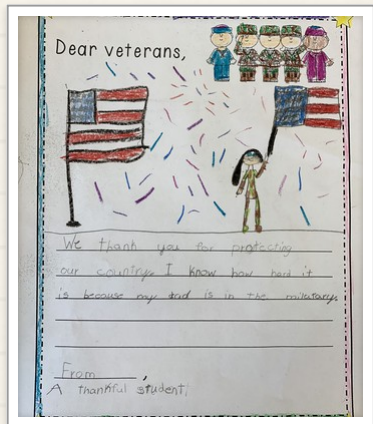 Dear veterans,
We thank you for protecting
our country. I know how hard it
is because my dad is in the milatary.
From,
A thankful student,